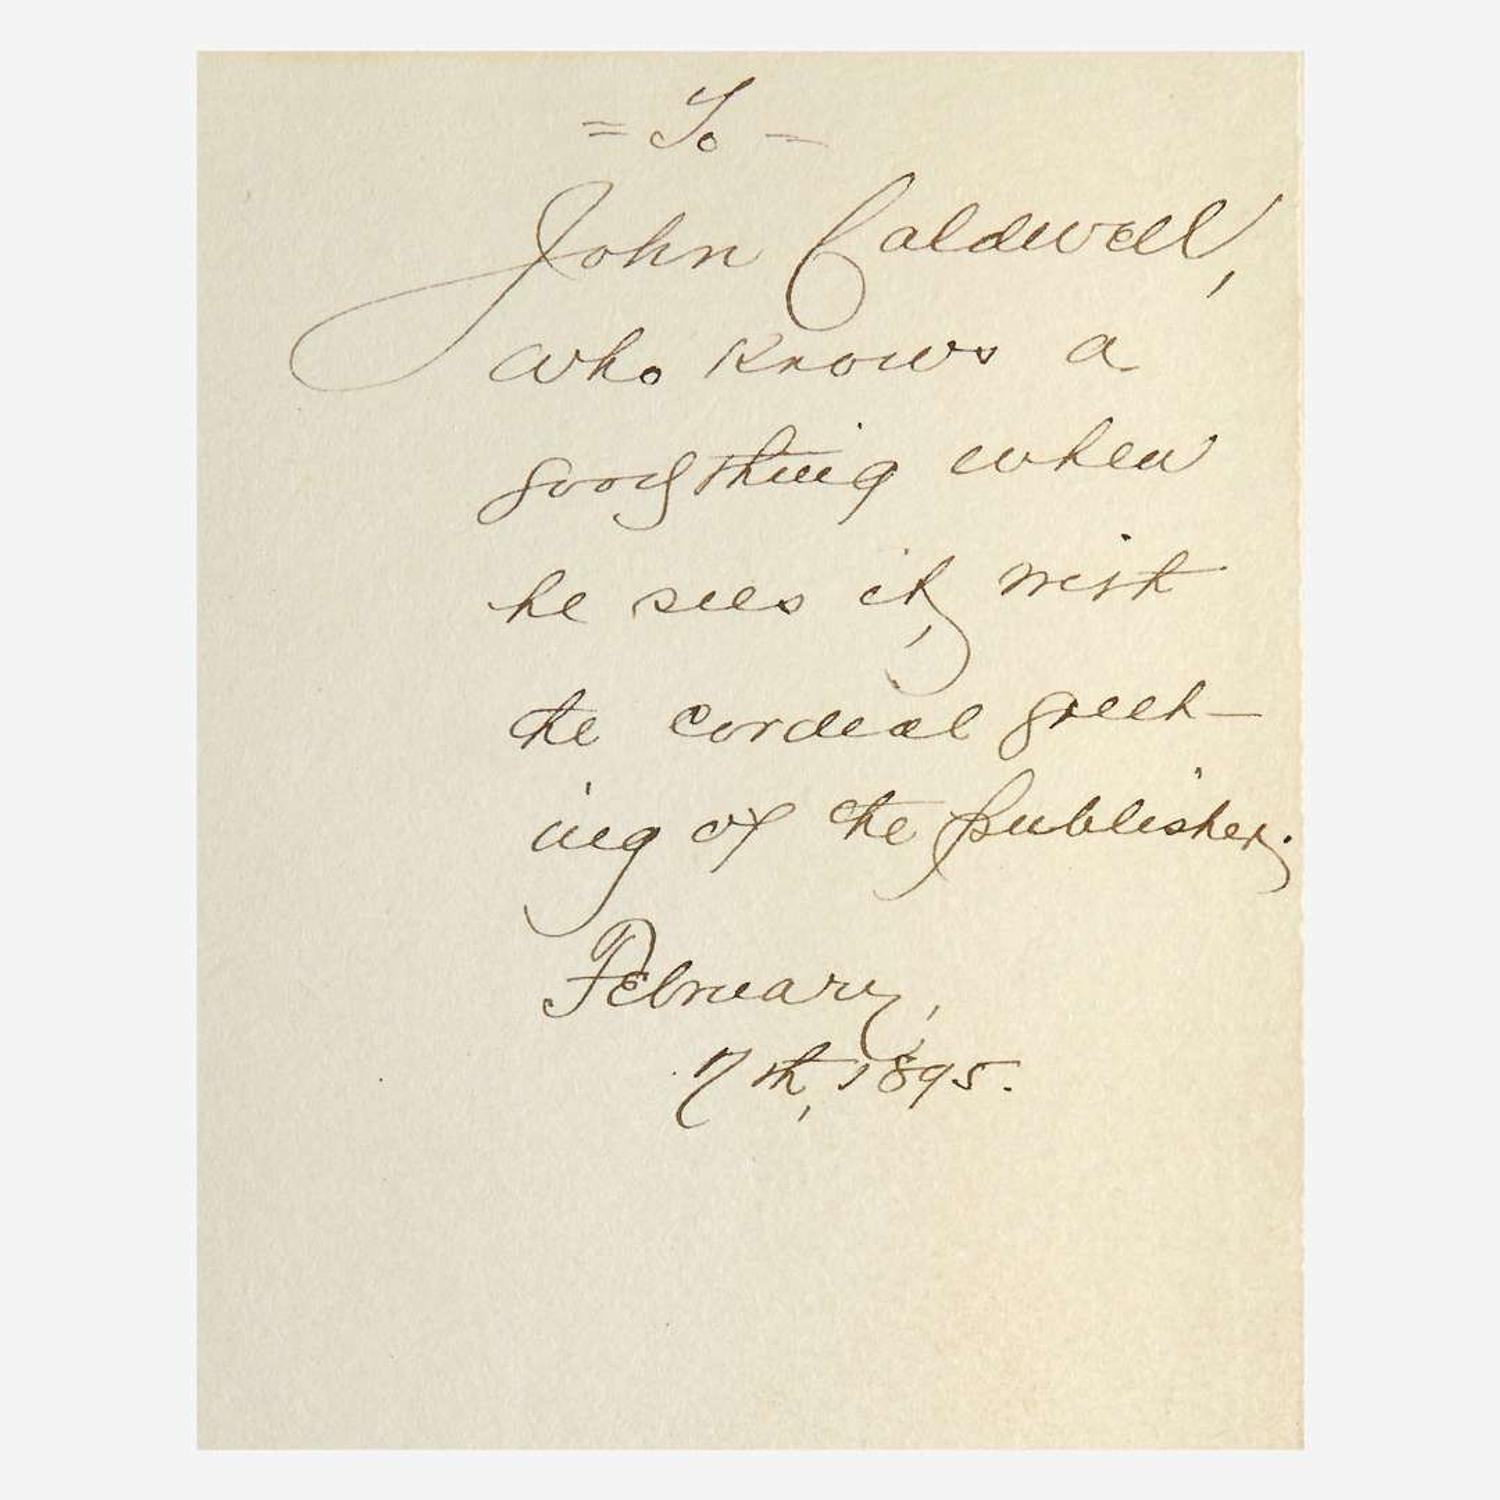 = To =
John Caldwell,
who knows a
good thing when
he sees it, with
the cordial greet-
ing of the publisher.
February,
7th, 1895.